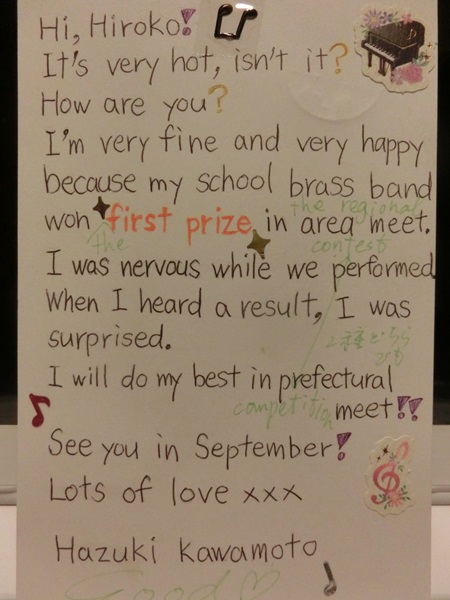 Hi, Hiroko!
It's very hot, isn't it?
How are you?
I'm very fine and very happy
because my school brass band
the regional
won first prize in area meet.
the contest
I was nervous while we performed
When I heard a result, I was
surprised.
I will do my best in prefectural
competition meet!!
See you in September!
Lots of love xxx
Hazuki Kawamoto
Good